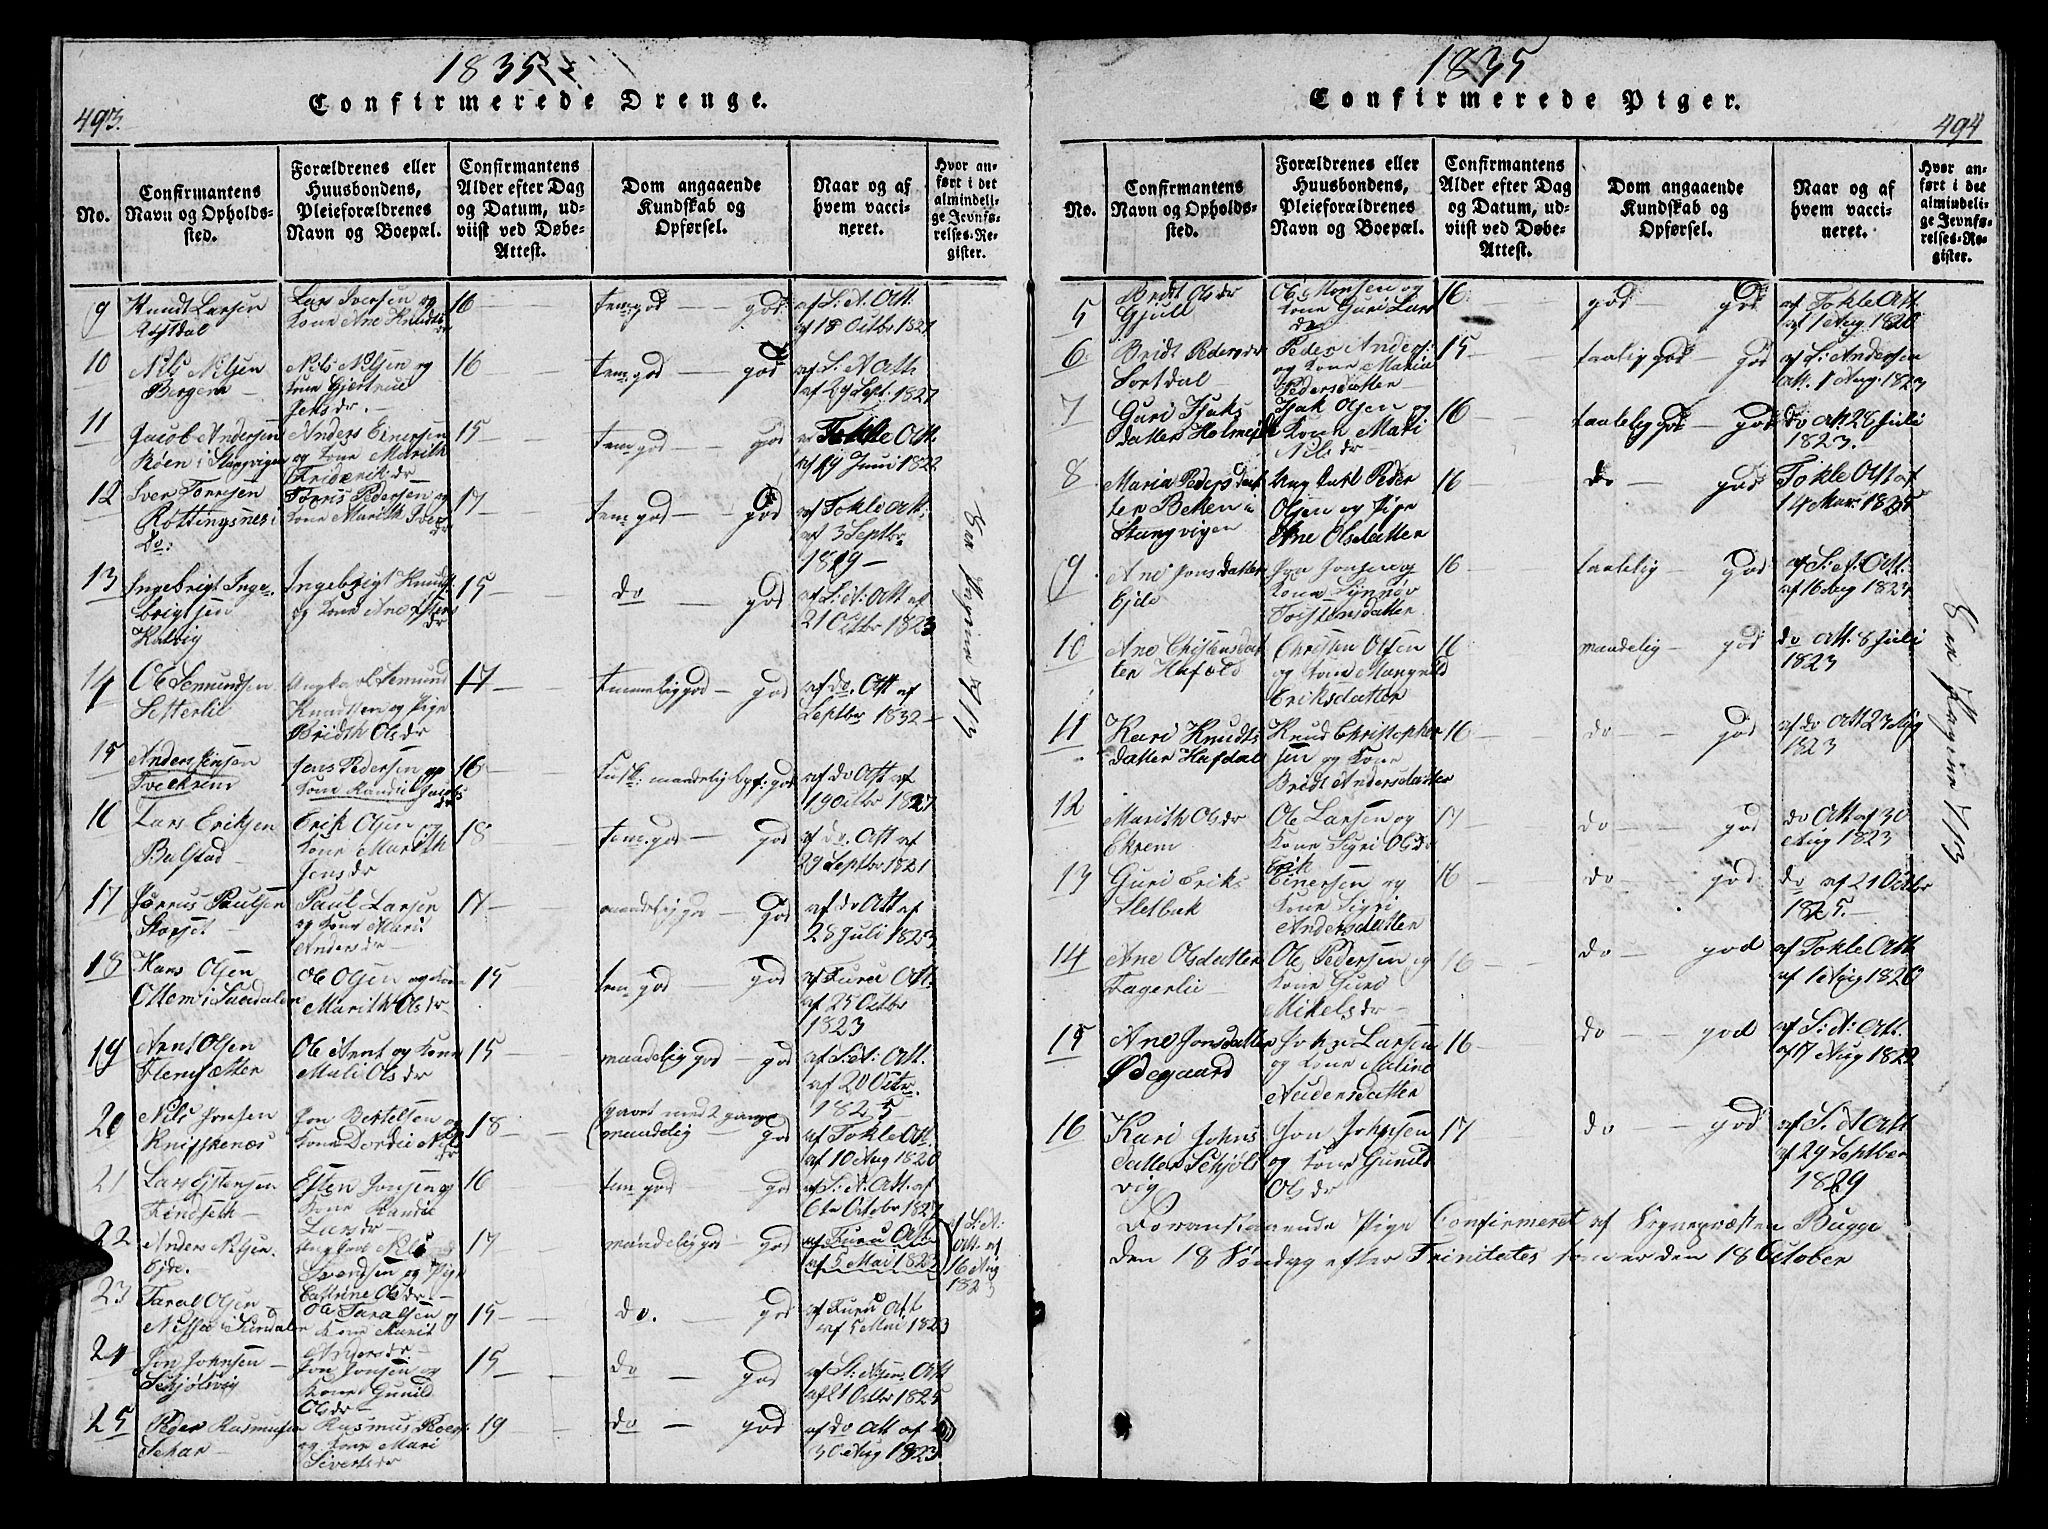 1835
Confirmerede Drenge.
493.
No.
Confirmantens
Navn og Opholds-
sted.
Forældrenes eller
Huusbondens,
Pleieforældrenes
Navn og Boepæl.
Confirmantens
Alder efter Dag
og Datum, ud-
viist ved Døbe-
Attest.
Dom angaaende
Kundskab og
Opførsel.
Naar og af
hvem vacci-
neret.
Hvor an-
ført i det
almindeli-
ge Jevnfø-
relses-Re-
gister.
9
Knudt Larsen
Lars Iversen og
Kone Ane Knudts
dr
16
tem: god — god
af S: A: Att.
af 18 Octbr 1827
10
Nils Nilsen
Bergem
Nils Nilsen og
Kone Gjertrue
Jensdr.
16
tem: god — god
af S: A Atth
af 29 Sept: 1827
11
Jacob Andersen
Røen i Stangvigen
Anders Einersen
og Kone Marith
Friderikdr
15
tem: god — god
af Tokle Att.
af 19 Juni 1822
12
Iver Torresen
Røttingsnes i
Do:
Torris Pedersen og
Kone Marith Ivers
dr
17
tem: god — god
af Tokle Att:
af 3 Septbr
1819 —
13
Ingebrigt Inge-
brigtsen
Kalvig
Ingebrigt Knudts
og Kone Ane
dr
15
do — god
af S: A: Att af
21 Octbr 1823
14
Ole Semundsen
Setterlie
Ungkarl Semund
Knudtsen og Pige
Bridth Olsdr
17
temmelig god — god
af do. Att af
Septbr 1832 —
15
Anders Jensen
Tveekrem
Jens Pedersen og
Kone Randie Jacobs
dr
16
Kusk: maadelig Opf: god
af do Att af
19 Octbr 1827
16
Lars Eriksen
Bolstad
Erik Olsen og
Kone Marith
Jensdr
18
tem: god — god
af do. Att af
29 Septbr 1821
17
Paulsen
Paul Larsen
og Kone Mari
Andersdr
17
maadelig god — god
af do Att af
28 Juli 1823
18
Hans Olsen
Ottem i Sundalen
Ole Olsen og Kone
Marith Olsdr
15
tem: god — god
af Furu Att.
af 25 Octbr
1823
19
Arnt Olsen
Flemsætter
Ole Arnt og Kone
Mali Olsdr
15
maadelig god — god
af S: A: Att.
af 20 Octr.
1825
20
Nils Jonsen
Knifskenæs
Jon Bertelsen og
Kone Dordie Nils
dr
18
prøvet med 2 gange
maadelig — god
af Tokle Att.
af 10 Aug 1820
21
Lars Estensen
Findseth
Esten Jonsen og
Kone Randie
Larsdr
16
tem: god — god
af S: A: Att. af
6te October 1827
22
Anders Nilsen
Ejde.
Ungkarl Nils
Svendsen og Pige
Cathrine Olsdr —
17
maadelig god — god
af Furu Att
af 5 Mai 1823
af S: A:
Att. af
16 Aug
1823
23
Taral Olsen
Nisja i Sundalen
Ole Taralsen og
Kone Marit
Andersdr —
15
do. god
af Furu Att
af 5 Mai 1823
24
Jon Johnsen —
Schjølsvig
Jon Jonsen og
Kone Gunild
Olsdr —
15
do god
af S: Att
af 21 Octbr 1825
25
Peder Rasmussen
Schar —
Rasmus Peders
og Kone Mari
Sivertsdr
19
do — god
af do Att af
30 Aug 1823
1835
Confirmerede Piger.
494
No.
Confirmantens
Navn og Opholds-
sted.
Forældrenes eller
Huusbondens,
Pleieforældrenes
Navn og Boepæl.
Confirmantens
Alder efter Dag
og Datum, ud-
viist ved Døbe-
Attest.
Dom angaaende
Kundskab og
Opførsel.
Naar og af
hvem vacci-
neret.
Hvor an-
ført i det
almindeli-
ge Jevnfø-
relses-Re-
gister.
5
Bridt Olsdr
Gjull
Ole Monsen og
Kone Guri Lars
dr
16
god god
af Tokle Att
af 1 Aug 1820
6
Bridt Pedersdr
Sortdal
Peder Anders:
og Kone Maria
Pedersdatter
15
taalig god — god
af S: Andersen
Att. 1 Aug. 1823
7
Guri Isaks
datter Holmeide
Isak Olsen og
Kone Mari
Nilsdr
16
taalelig god — god
do Att 26 Juli
1823.
8
Maria Peders dat
ter Bekken i
Stangvigen
Ung Carl Peder
Olsen og Pige
Ane Olsdatter
16
do — god
Tokle Att af
14 Mar: 1825
9
Ane Jonsdatter
Ejde
Jon Jonsen og
Kone Synnøv
Torstensdatter
16
taalelig — god
af S: A: Att.
af 16 Aug 1823
10
Ane Chistensdat
ter Hafæld
Christen Olsen
og Kone Mangnild
Eriksdatter
16
maadelig — god
do Att. 8 Juli
1823
11
Kari Knudts
datter Hafdal
Knud Christopher
sen og Kone
Bridt Andersdatter
16
do — god
af do Att 23 Aug
1823
12
Marith Olsdr
Ekrem
Ole Larsen og
Kone Sigri Olsdr
17
do — god
do Att af 30
Aug 1823
13
Guri Eriks
Sletbak
Erik
Einersen og
Kone Sigri
Andersdatter
16
do — god
do af 21 Octbr
1825.
14
Ane Olsdatter
Fagerlie
Ole Pedersen og
Kone Guro
Mikelsdr
16
do — god
af Tokle Att
af 1 Aug 1820
15
Ane Jonsdatter
Ødegaard
John Larsen
og Kone Maline
Audensdatter
16
do — god
af S: A: Att.
af 17 Aug 1822
16
Kari Johns
datter Schjøls
vig
Jon Johnsen
og Kone Gunild
Olsdr
17
do — god
af S. A Att
af 29 Septber
1829
Foranstaaende Pige Confirmeret af Sognepræsten Bugge
den 18 Søndag efter Trinitates som er den 18 October